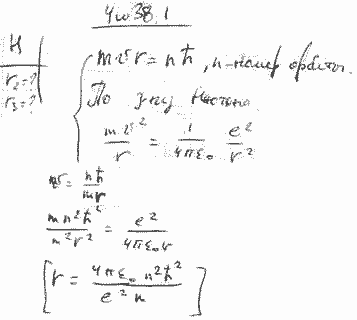 Чиз8.1
H
r₂=?
r₃=?
mυr = nħ, n-номер орбиты.
По з-ну Ньютона.
mυ²/r = 1/4πε₀ e²/r²
υ = nħ/mr
mn²ħ²/m²r² = e²/4πε₀r
[r = 4πε₀ n²ħ²/e² m]